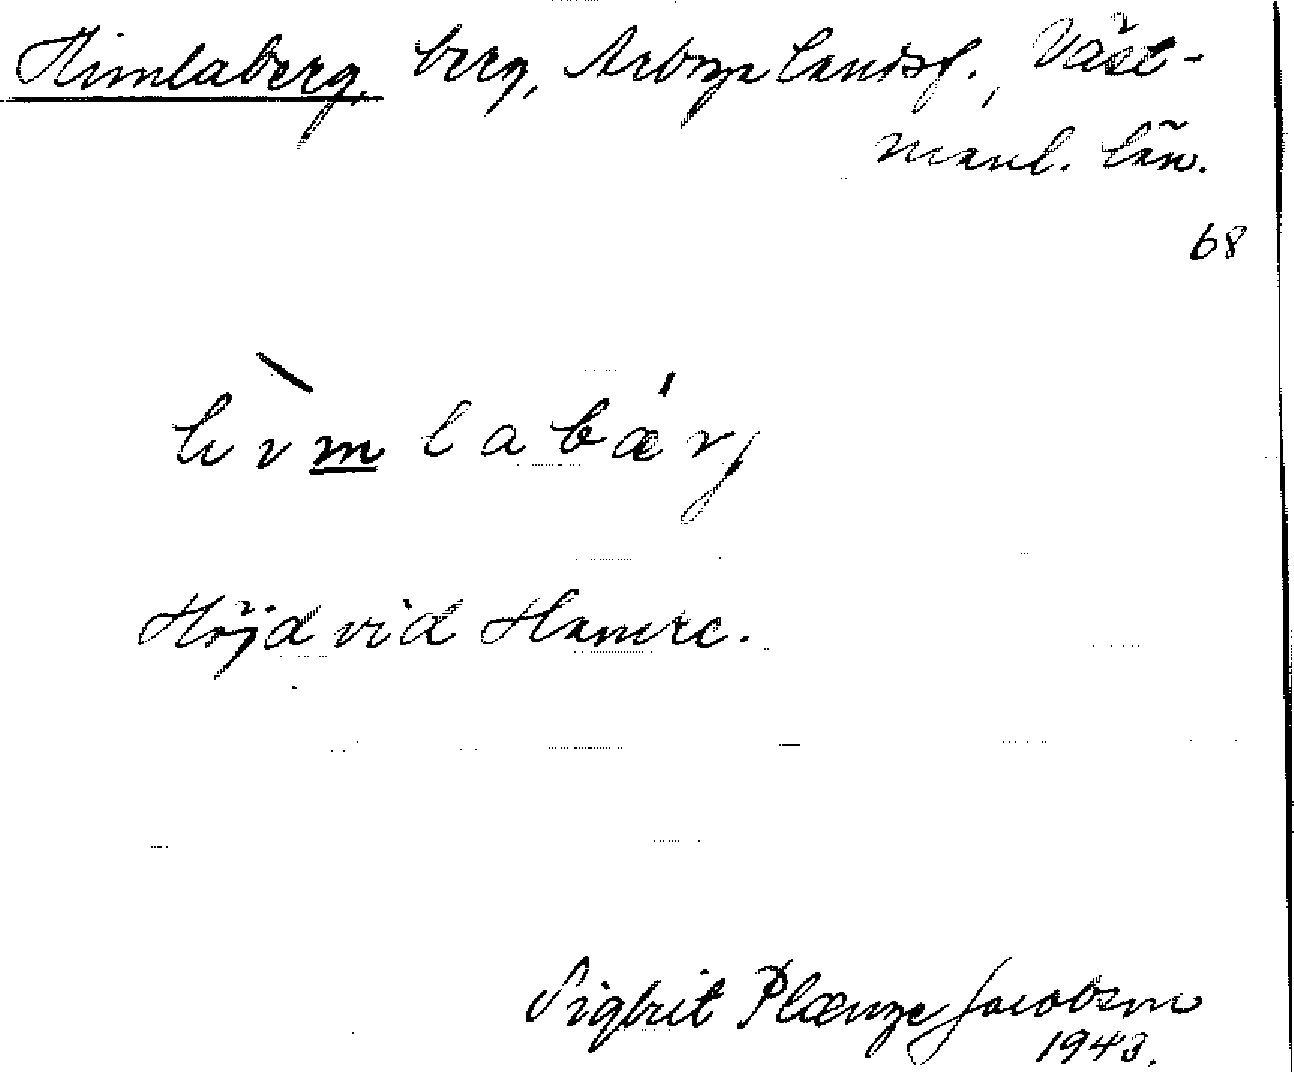 Himlaberg, berg, Arboga landsf., Väst-
manl. län.
68
hìmlabǽrj
Höjd vid Hamre.
Sigbrit Plænge Jacobson
1943.